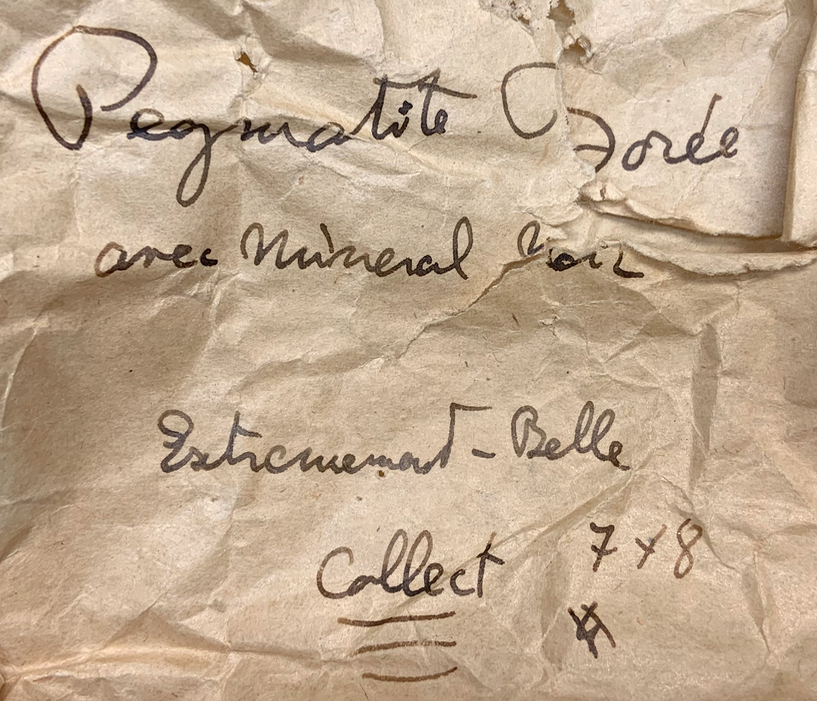 Pegmatite Dorée
avec Minéral Noir
Extremement - Belle
Collect 7 x 8